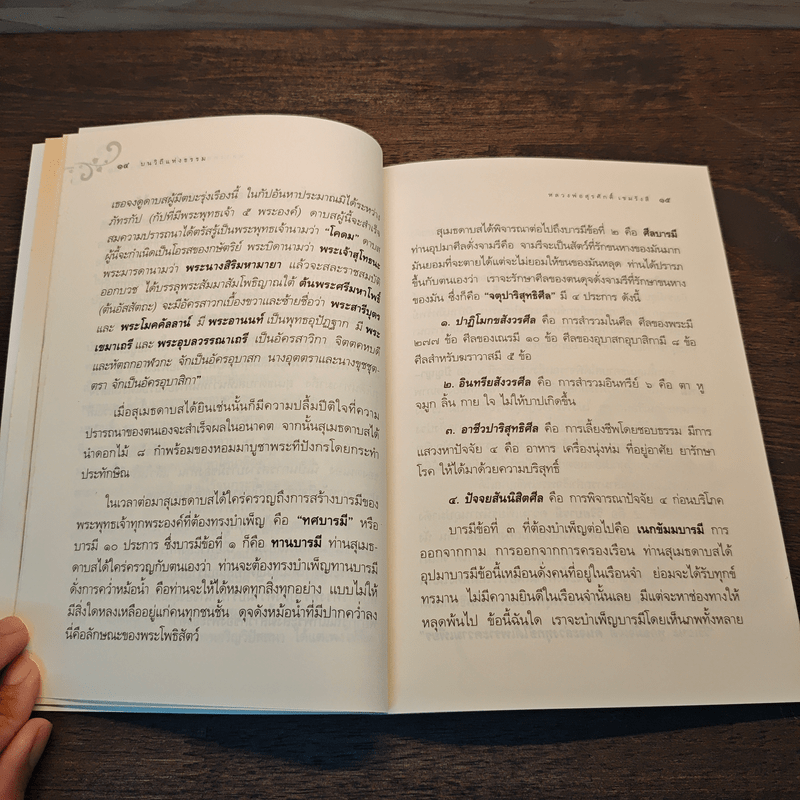 ๑๔ บนวิถีแห่งธรรม
เธอจงดูดาบสผู้มีตบะรุ่งเรืองนี้ ในกัปอันหาประมาณมิได้ระหว่าง
ภัทรกัป (กัปที่มีพระพุทธเจ้า ๕ พระองค์) ดาบสผู้นี้จะสำเร็จ
สมความปรารถนาได้ตรัสรู้เป็นพระพุทธเจ้านามว่า “โคดม” ดาบส
ผู้นี้จะกำเนิดเป็นโอรสของกษัตริย์ พระบิดานามว่า พระเจ้าสุโทธนะ
พระมารดานามว่า พระนางสิริมหามายา แล้วจะสละราชสมบัติ
ออกบวช ได้บรรลุพระสัมมาสัมโพธิญาณใต้ ต้นพระศรีมหาโพธิ์
(ต้นอัสสัตถะ) จะมีอัครสาวกเบื้องขวาและซ้ายชื่อว่า พระสารีบุตร
และ พระโมคคัลลาน์ มี พระอานนท์ เป็นพุทธอุปัฏฐาก มี พระ
เขมาเถรี และ พระอุบลวรรณาเถรี เป็นอัครสาวิกา จิตตคหบดี
และหัตถกอาฬวกะ จักเป็นอัครอุบาสก นางอุตตราและนางขุชชุต-
ตรา จักเป็นอัครอุบาสิกา”
เมื่อสุเมธดาบสได้ยินเช่นนั้นก็มีความปลื้มปีติใจที่ความ
ปรารถนาของตนเองจะสำเร็จผลในอนาคต จากนั้นสุเมธดาบสได้
นำดอกไม้ ๘ กำพร้อมของหอมมาบูชาพระทีปังกรโดยกระทำ
ประทักษิณ
ในเวลาต่อมาสุเมธดาบสได้ใคร่ครวญถึงการสร้างบารมีของ
พระพุทธเจ้าทุกพระองค์ที่ต้องทรงบำเพ็ญ คือ “ทศบารมี” หรือ
บารมี ๑๐ ประการ ซึ่งบารมีข้อที่ ๑ ก็คือ ทานบารมี ท่านสุเมธ-
ดาบสได้ใคร่ครวญกับตนเองว่า ท่านจะต้องทรงบำเพ็ญทานบารมี
ดั่งการคว่ำหม้อน้ำ คือท่านจะให้ได้หมดทุกสิ่งทุกอย่าง แบบไม่ให้
มีสิ่งใดหลงเหลืออยู่แก่คนทุกชนชั้น ดุจดังหม้อน้ำที่มีปากคว่ำลง
นี่คือลักษณะของพระโพธิสัตว์
หลวงพ่อสุรศักดิ์ เขมรังสี ๑๕
สุเมธดาบสได้พิจารณาต่อไปถึงบารมีข้อที่ ๒ คือ ศีลบารมี
ท่านอุปมาศีลดั่งจามรีคือ จามรีจะเป็นสัตว์ที่รักขนหางของมันมาก
มันยอมที่จะตายได้แต่จะไม่ยอมให้ขนของมันหลุด ท่านได้ปรารภ
ขึ้นกับตนเองว่า เราจะรักษาศีลของตนดุจดั่งจามรีที่รักขนหาง
ของมัน ซึ่งก็คือ “จตุปาริสุทธิศีล” มี ๔ ประการ ดังนี้
๑. ปาฏิโมกขสังวรศีล คือ การสำรวมในศีล ศีลของพระมี
๒๗๗ ข้อ ศีลของเณรมี ๑๐ ข้อ ศีลของอุบาสกอุบาสิกามี ๘ ข้อ
ศีลสำหรับฆราวาสมี ๕ ข้อ
๒. อินทรียสังวรศีล คือ การสำรวมอินทรีย์ ๖ คือ ตา หู
จมูก ลิ้น กาย ใจ ไม่ให้บาปเกิดขึ้น
๓. อาชีวปาริสุทธิศีล คือ การเลี้ยงชีพโดยชอบธรรม มีการ
แสวงหาปัจจัย ๔ คือ อาหาร เครื่องนุ่งห่ม ที่อยู่อาศัย ยารักษา
โรค ให้ได้มาด้วยความบริสุทธิ์
๔. ปัจจยสันนิสิตศีล คือ การพิจารณาปัจจัย ๔ ก่อนบริโภค
บารมีข้อที่ ๓ ที่ต้องบำเพ็ญต่อไปคือ เนกขัมมบารมี การ
ออกจากกาม การออกจากการครองเรือน ท่านสุเมธดาบสได้
อุปมาบารมีข้อนี้เหมือนดั่งคนที่อยู่ในเรือนจำ ย่อมจะได้รับทุกข์
ทรมาน ไม่มีความยินดีในเรือนจำนั้นเลย มีแต่จะหาช่องทางให้
หลุดพ้นไป ข้อนี้ฉันใด เราจะบำเพ็ญบารมีโดยเห็นภพทั้งหลาย